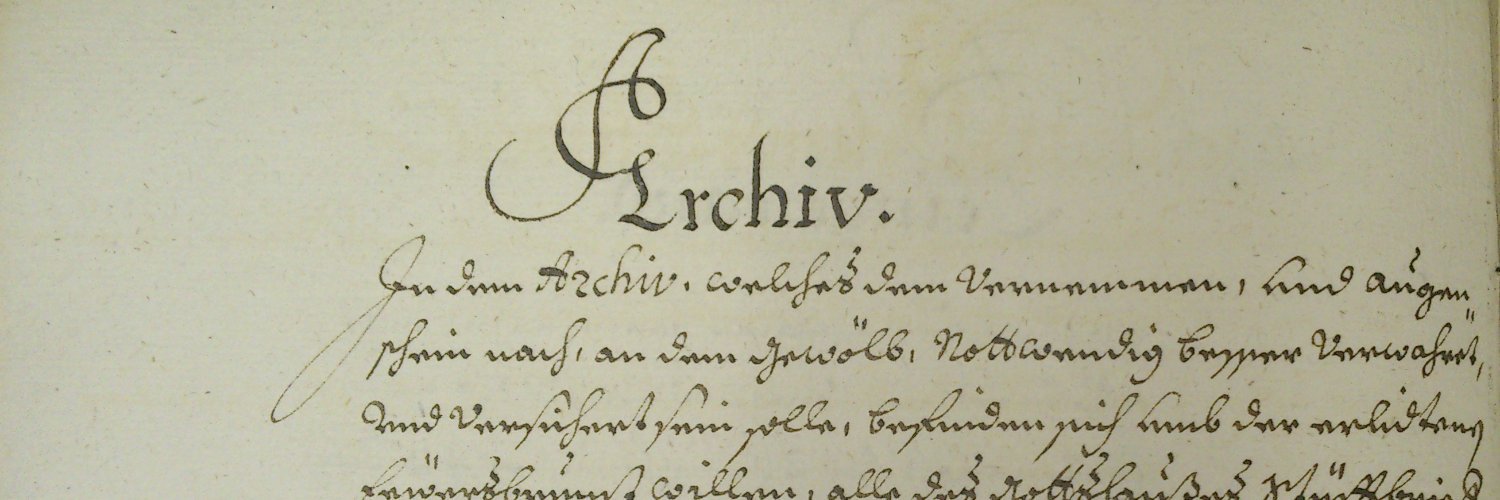 Archiv.
In dem Archiv, welches dem Vernemmen, und augen
schein nach, an dem gewölb, Nottwendig besser Verwahret,
Und Versichert sein solle, befinden sich umb der erlidtenen
fewersbrunst willen, alle des Gottshaußes